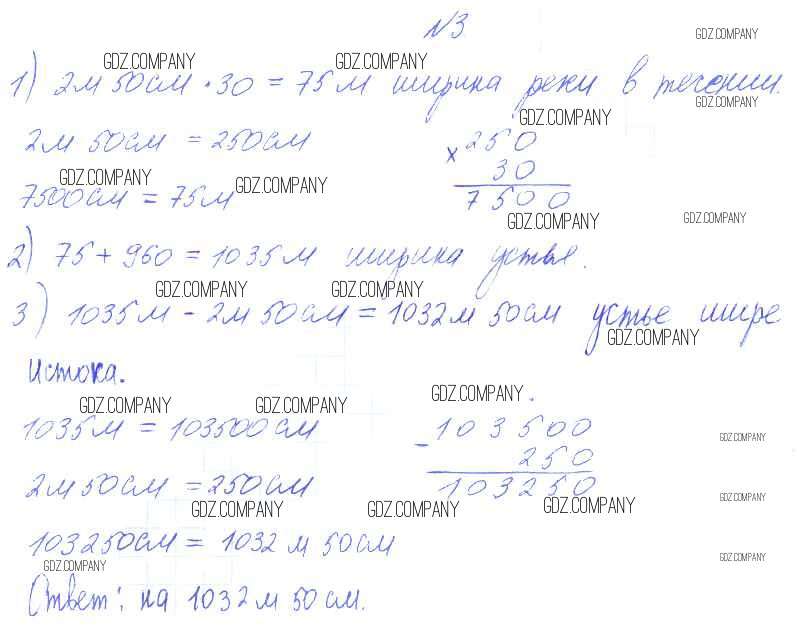 №3.
GDZ.COMPANY
GDZ.COMPANY GDZ.COMPANY
1) 2м 50см · 30 = 75м ширина реки в течении.
GDZ.COMPANY
GDZ.COMPANY
2м 50см = 250см
× 250
30
7500
GDZ.COMPANY GDZ.COMPANY
7500см = 75м
GDZ.COMPANY GDZ.COMPANY
2) 75 + 960 = 1035м ширина устья.
GDZ.COMPANY GDZ.COMPANY
3) 1035м - 2м 50см = 1032м 50см устье шире
GDZ.COMPANY
истока.
GDZ.COMPANY GDZ.COMPANY GDZ.COMPANY
1035м = 103500см
- 103500
250
103250
GDZ.COMPANY
2м 50см = 250см
GDZ.COMPANY GDZ.COMPANY GDZ.COMPANY GDZ.COMPANY
103250см = 1032м 50см
GDZ.COMPANY GDZ.COMPANY
Ответ: на 1032м 50см.